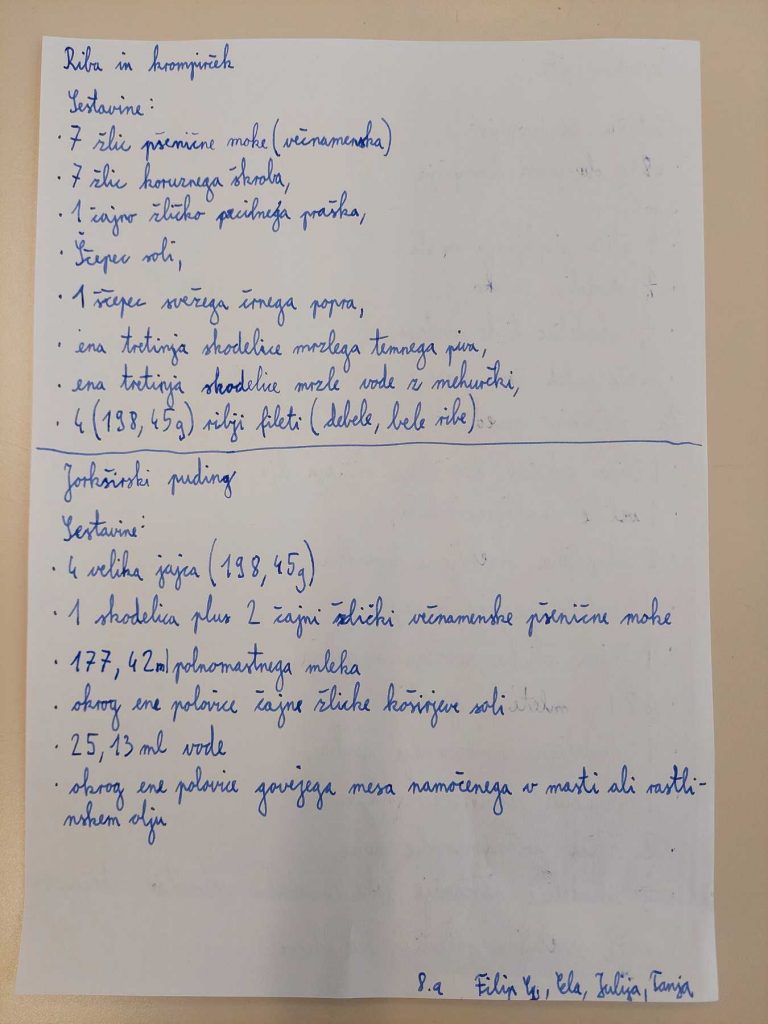 Riba in krompirček
Sestavine:
· 7 žlic pšenične moke (večnamenska)
· 7 žlic koruznega škroba,
· 1 čajno žličko pecilnega praška,
· Ščepec soli,
· 1 ščepec svežega črnega popra,
· ena tretinja skodelice mrzlega temnega piva,
· ena tretinja skodelice mrzle vode z mehurčki,
· 4 (198,45g) ribji fileti (debele, bele ribe)
Jorkširski puding
Sestavine:
· 4 velika jajca (198,45g)
· 1 skodelica plus 2 čajni žlički večnamenske pšenične moke
· 177,42ml polnomastnega mleka
· okrog ene polovice čajne žličke koširjeve soli
· 25,13 ml vode
· okrog ene polovice govejega mesa namočenega v masti ali rastli-
nskem olju
8.a Filip , Ela, Julija, Tanja